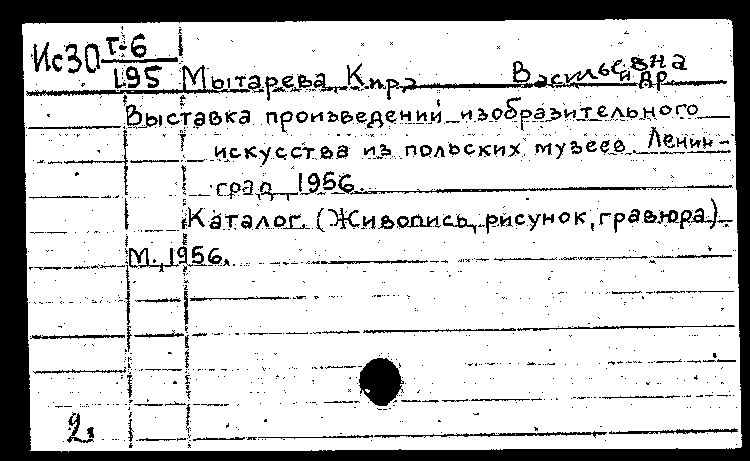 Ис30 Т-6
195 Мытарева, Кира Васильевна
и др.
Выставка произведений изобразительного
искусства из польских музеев. Ленин-
град, 1956.
Каталог. (Живопись, рисунок, гравюра).
М., 1956.
2.